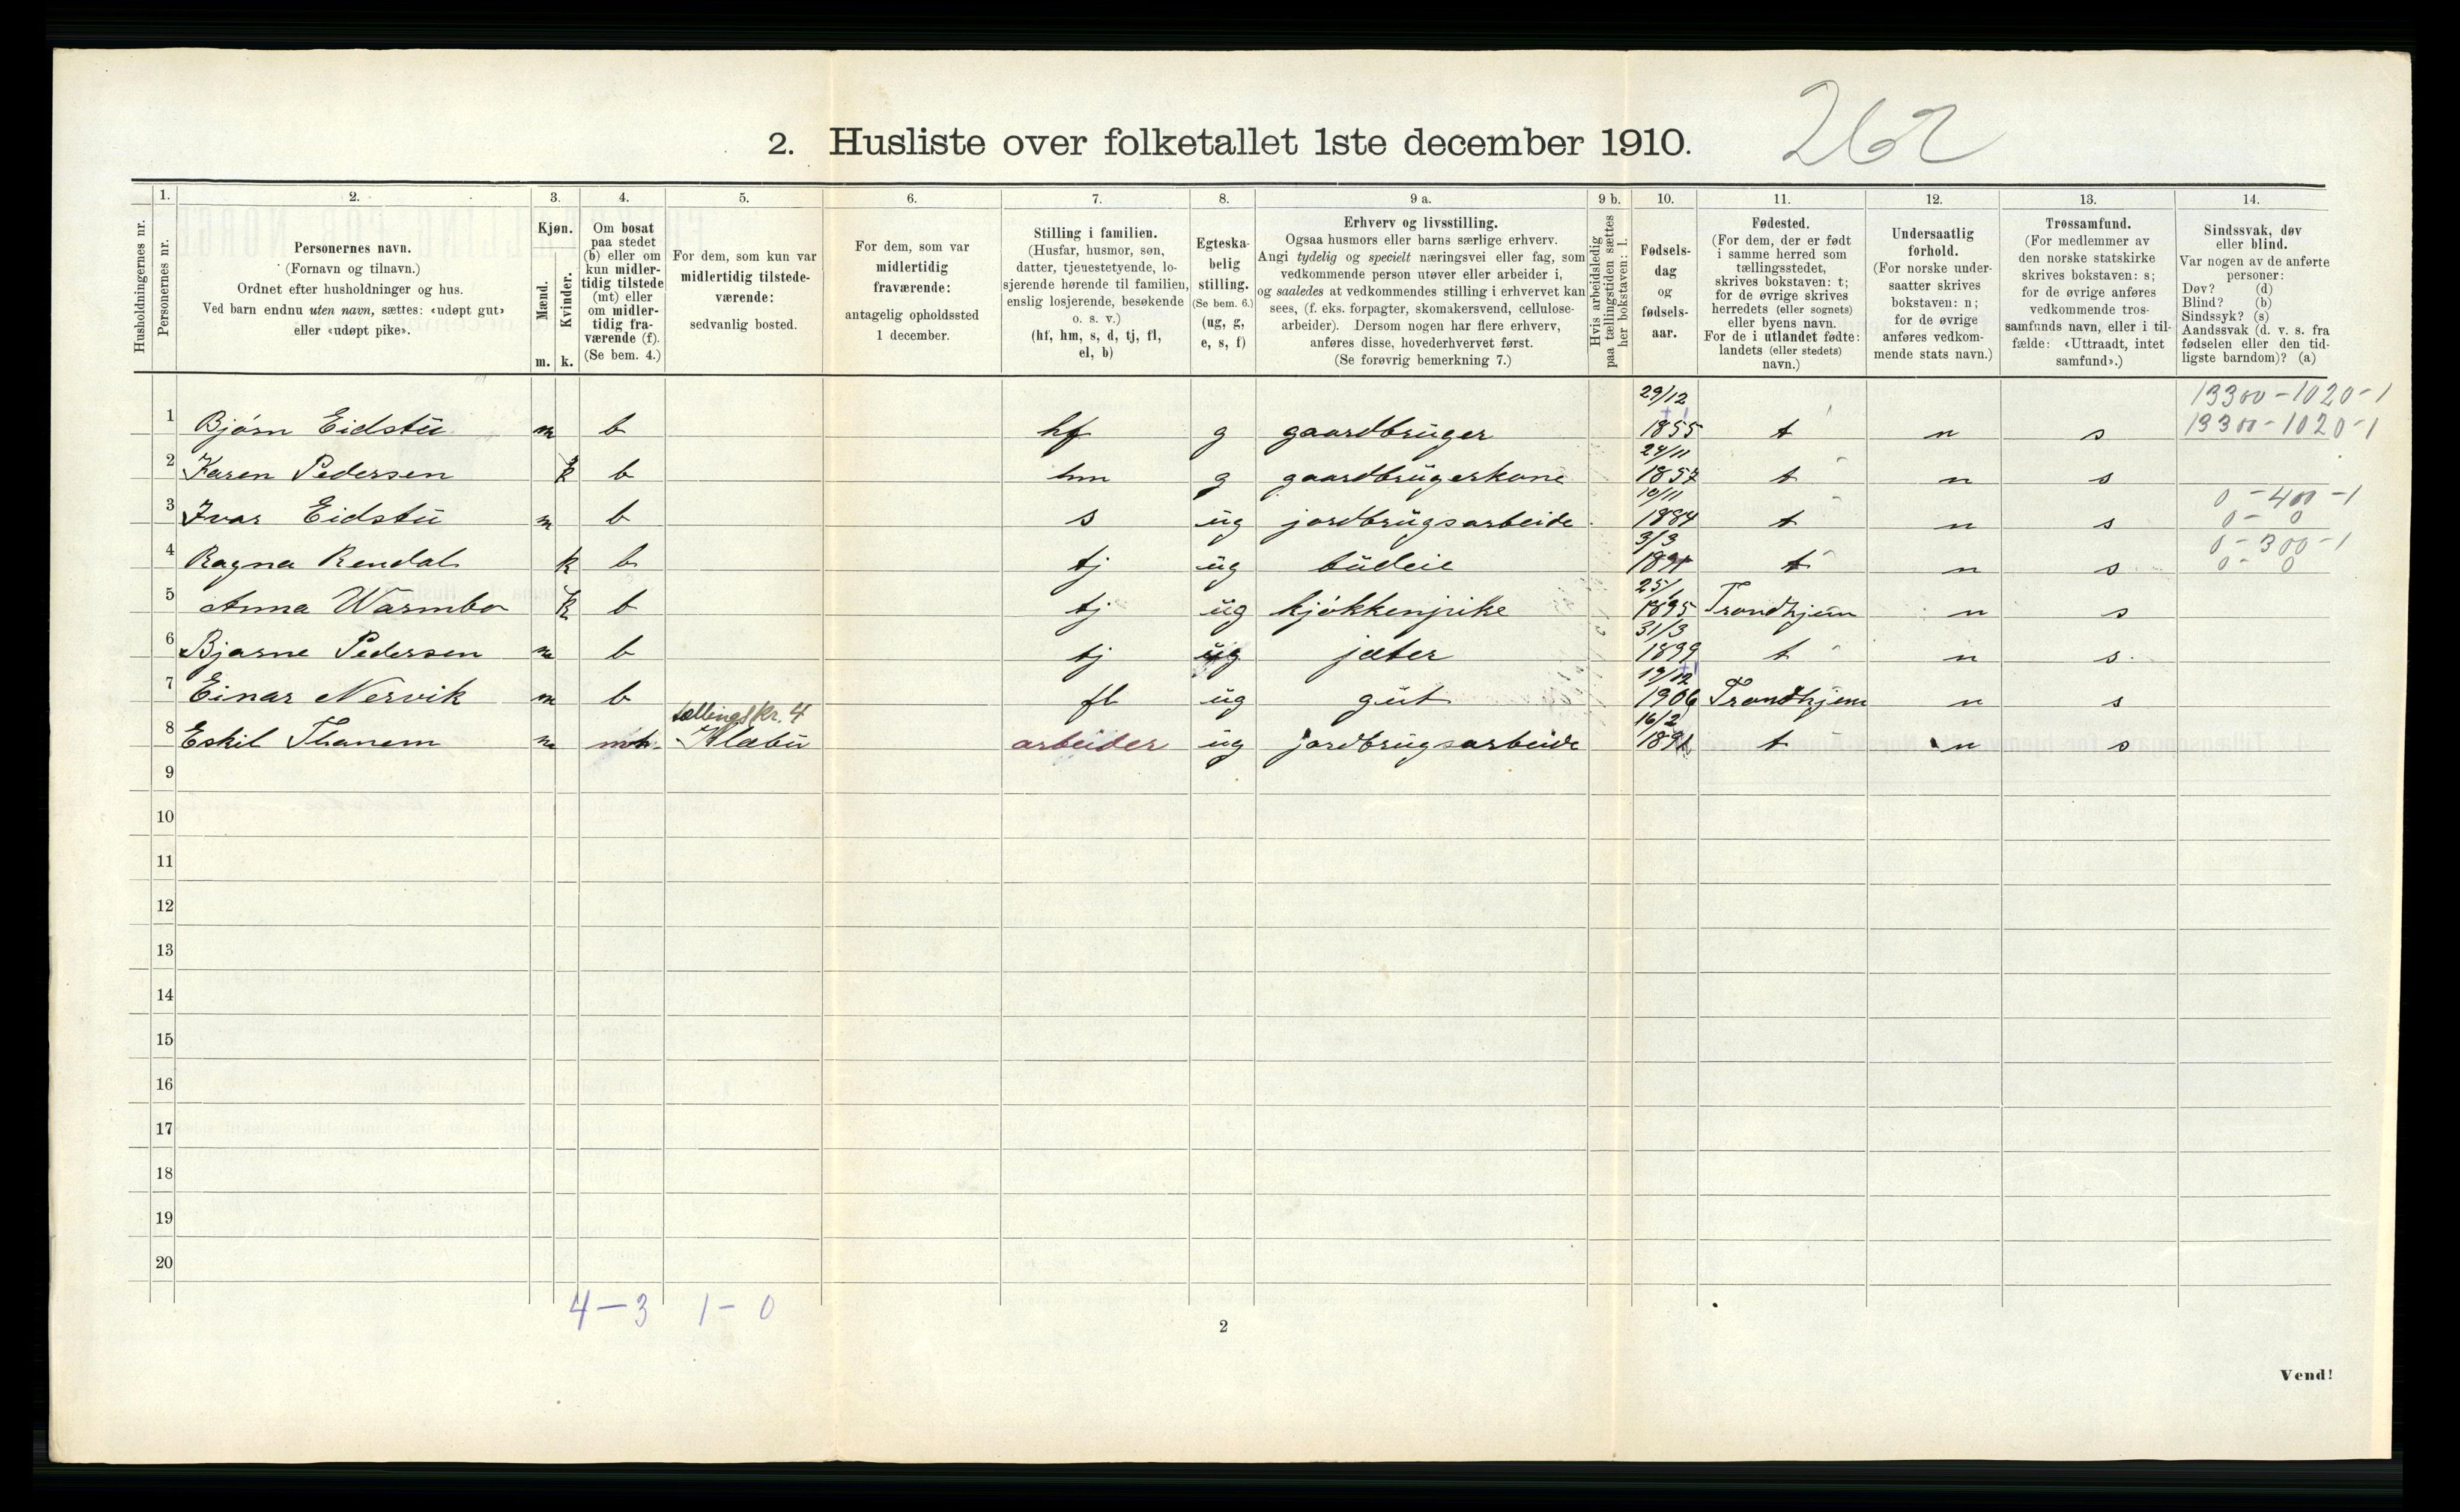 262
2. Husliste over folketallet 1ste december 1910.
Husholdningernes nr.
1. Personernes nr.
2. Personernes navn. (Fornavn og tilnavn.) Ordnet efter husholdninger og hus. Ved barn endnu uten navn, sættes: «udøpt gut» eller «udøpt pike».
3. Kjøn. Mænd. m. Kvinder. k.
4. Om bosat paa stedet (b) eller om kun midlertidig tilstede (mt) eller om midlertidig fraværende (f). (Se bem. 4.)
5. For dem, som kun var midlertidig tilstedeværende: sedvanlig bosted.
6. For dem, som var midlertidig fraværende: antagelig opholdssted 1 december.
7. Stilling i familien. (Husfar, husmor, søn, datter, tjenestetyende, losjerende hørende til familien, enslig losjerende, besøkende o. s. v.) (hf, hm, s, d, tj, fl, el, b)
8. Egteskabelig stilling. (Se bem. 6.) (ug, g, e, s, f)
9 a. Erhverv og livsstilling. Ogsaa husmors eller barns særlige erhverv. Angi tydelig og specielt næringsvei eller fag, som vedkommende person utøver eller arbeider i, og saaledes at vedkommendes stilling i erhvervet kan sees, (f. eks. forpagter, skomakersvend, cellulosearbeider). Dersom nogen har flere erhverv, anføres disse, hovederhvervet først. (Se forøvrig bemerkning 7.)
9 b. Hvis arbeidsledig paa tællingstiden sættes her bokstaven: l.
10. Fødselsdag og fødselsaar.
11. Fødested. (For dem, der er født i samme herred som tællingsstedet, skrives bokstaven: t; for de øvrige skrives herredets (eller sognets) eller byens navn. For de i utlandet fødte: landets (eller stedets) navn.)
12. Undersaatlig forhold. (For norske undersaatter skrives bokstaven: n; for de øvrige anføres vedkommende stats navn.)
13. Trossamfund. (For medlemmer av den norske statskirke skrives bokstaven: s; for de øvrige anføres vedkommende trossamfunds navn, eller i tilfælde: «Uttraadt, intet samfund».)
14. Sindssvak, døv eller blind. Var nogen av de anførte personer: Døv? (d) Blind? (b) Sindssyk? (s) Aandssvak (d. v. s. fra fødselen eller den tidligste barndom)? (a)
29/12 13300-1020-1
1 Bjørn Eidstu m b hf g gaardbruger 1855 t n s 13300-1020-1
24/11
2 Karen Pedersen k b hm g gaardbrugerkone 1857 t n s
10/11 0-400-1
3 Ivar Eidstu m b s ug jordbrugsarbeide 1884 t n s 0-0
3/3 0-300-1
4 Ragna Rendal k b tj ug budeie t n s 0-0
25/1
5 Anna Warmbo k b tj ug kjøkkenpike 1895 Trondhjem n s
31/3
6 Bjarne Pedersen m b tj ug jæter 1899 t n s
7 Einar Nervik m b fl ug gut 1906 Trondhjem n s
tællingskr. 4 16/2
8 Eskil Thanem m mt Klæbu arbeider ug jordbrugsarbeide t n s
9
10
11
12
13
14
15
16
17
18
19
20
4-3 1-0
2
Vend!